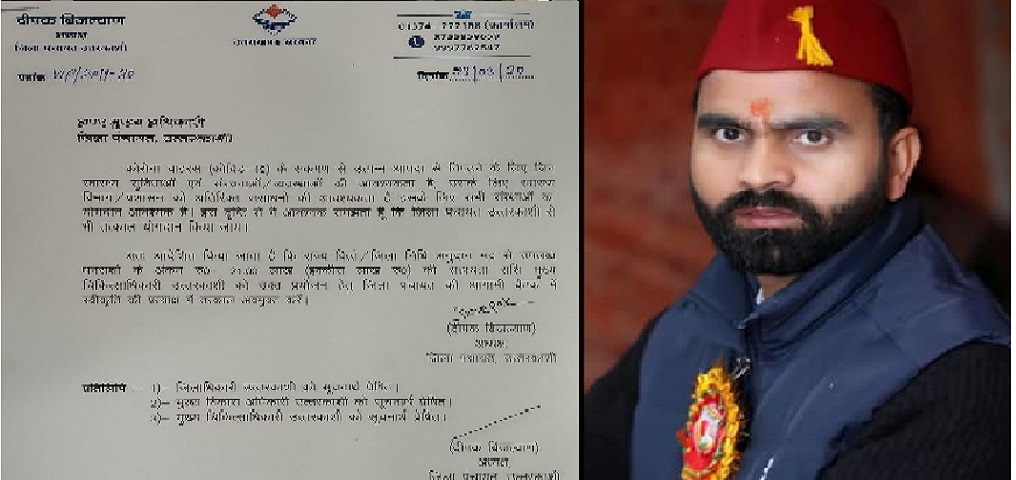 दीपक बिजल्वाण
अध्यक्ष
जिला पंचायत उत्तरकाशी
उत्तराखण्ड सरकार
(कार्यालय)
पत्रांक
दिनांक
अपर मुख्य अधिकारी
जिला पंचायत, उत्तरकाशी।
कोरोना वाइरस (कोविड 19) के संक्रमण से उत्पन्न आपदा से निपटने के लिए जिन
स्वास्थ्य सुविधाओं एवं संरचनाओं/व्यवस्थाओं की आवश्यकता है, उसके लिए स्वास्थ्य
विभाग/प्रशासन को अतिरिक्त संसाधनों की आवश्यकता है इसके लिए सभी संस्थाओं का
योगदान आवश्यक है। इस दृष्टि से मैं आवश्यक समझता हूँ कि जिला पंचायत उत्तरकाशी से
भी तत्काल योगदान किया जाय।
अतः आदेशित किया जाता है कि राज्य वित्त/जिला निधि अनुदान मद से उपलब्ध
धनराशी के अंकन रू0- 21.00 लाख (इक्कीस लाख रू0) की सहायता राशि मुख्य
चिकित्साधिकारी उत्तरकाशी को उक्त प्रयोजन हेतु जिला पंचायत की आगामी बैठक में
स्वीकृति की प्रत्याशा में तत्काल अवमुक्त करें।
(दीपक बिजल्वाण)
अध्यक्ष,
जिला पंचायत, उत्तरकाशी
प्रतिलिपि :- 1)- जिलाधिकारी उत्तरकाशी को सूचनार्थ प्रेषित।
2)- मुख्य विकास अधिकारी उत्तरकाशी को सूचनार्थ प्रेषित।
3)- मुख्य चिकित्साधिकारी उत्तरकाशी को सूचनार्थ प्रेषित।
(दीपक बिजल्वाण)
अध्यक्ष,
जिला पंचायत, उत्तरकाशी